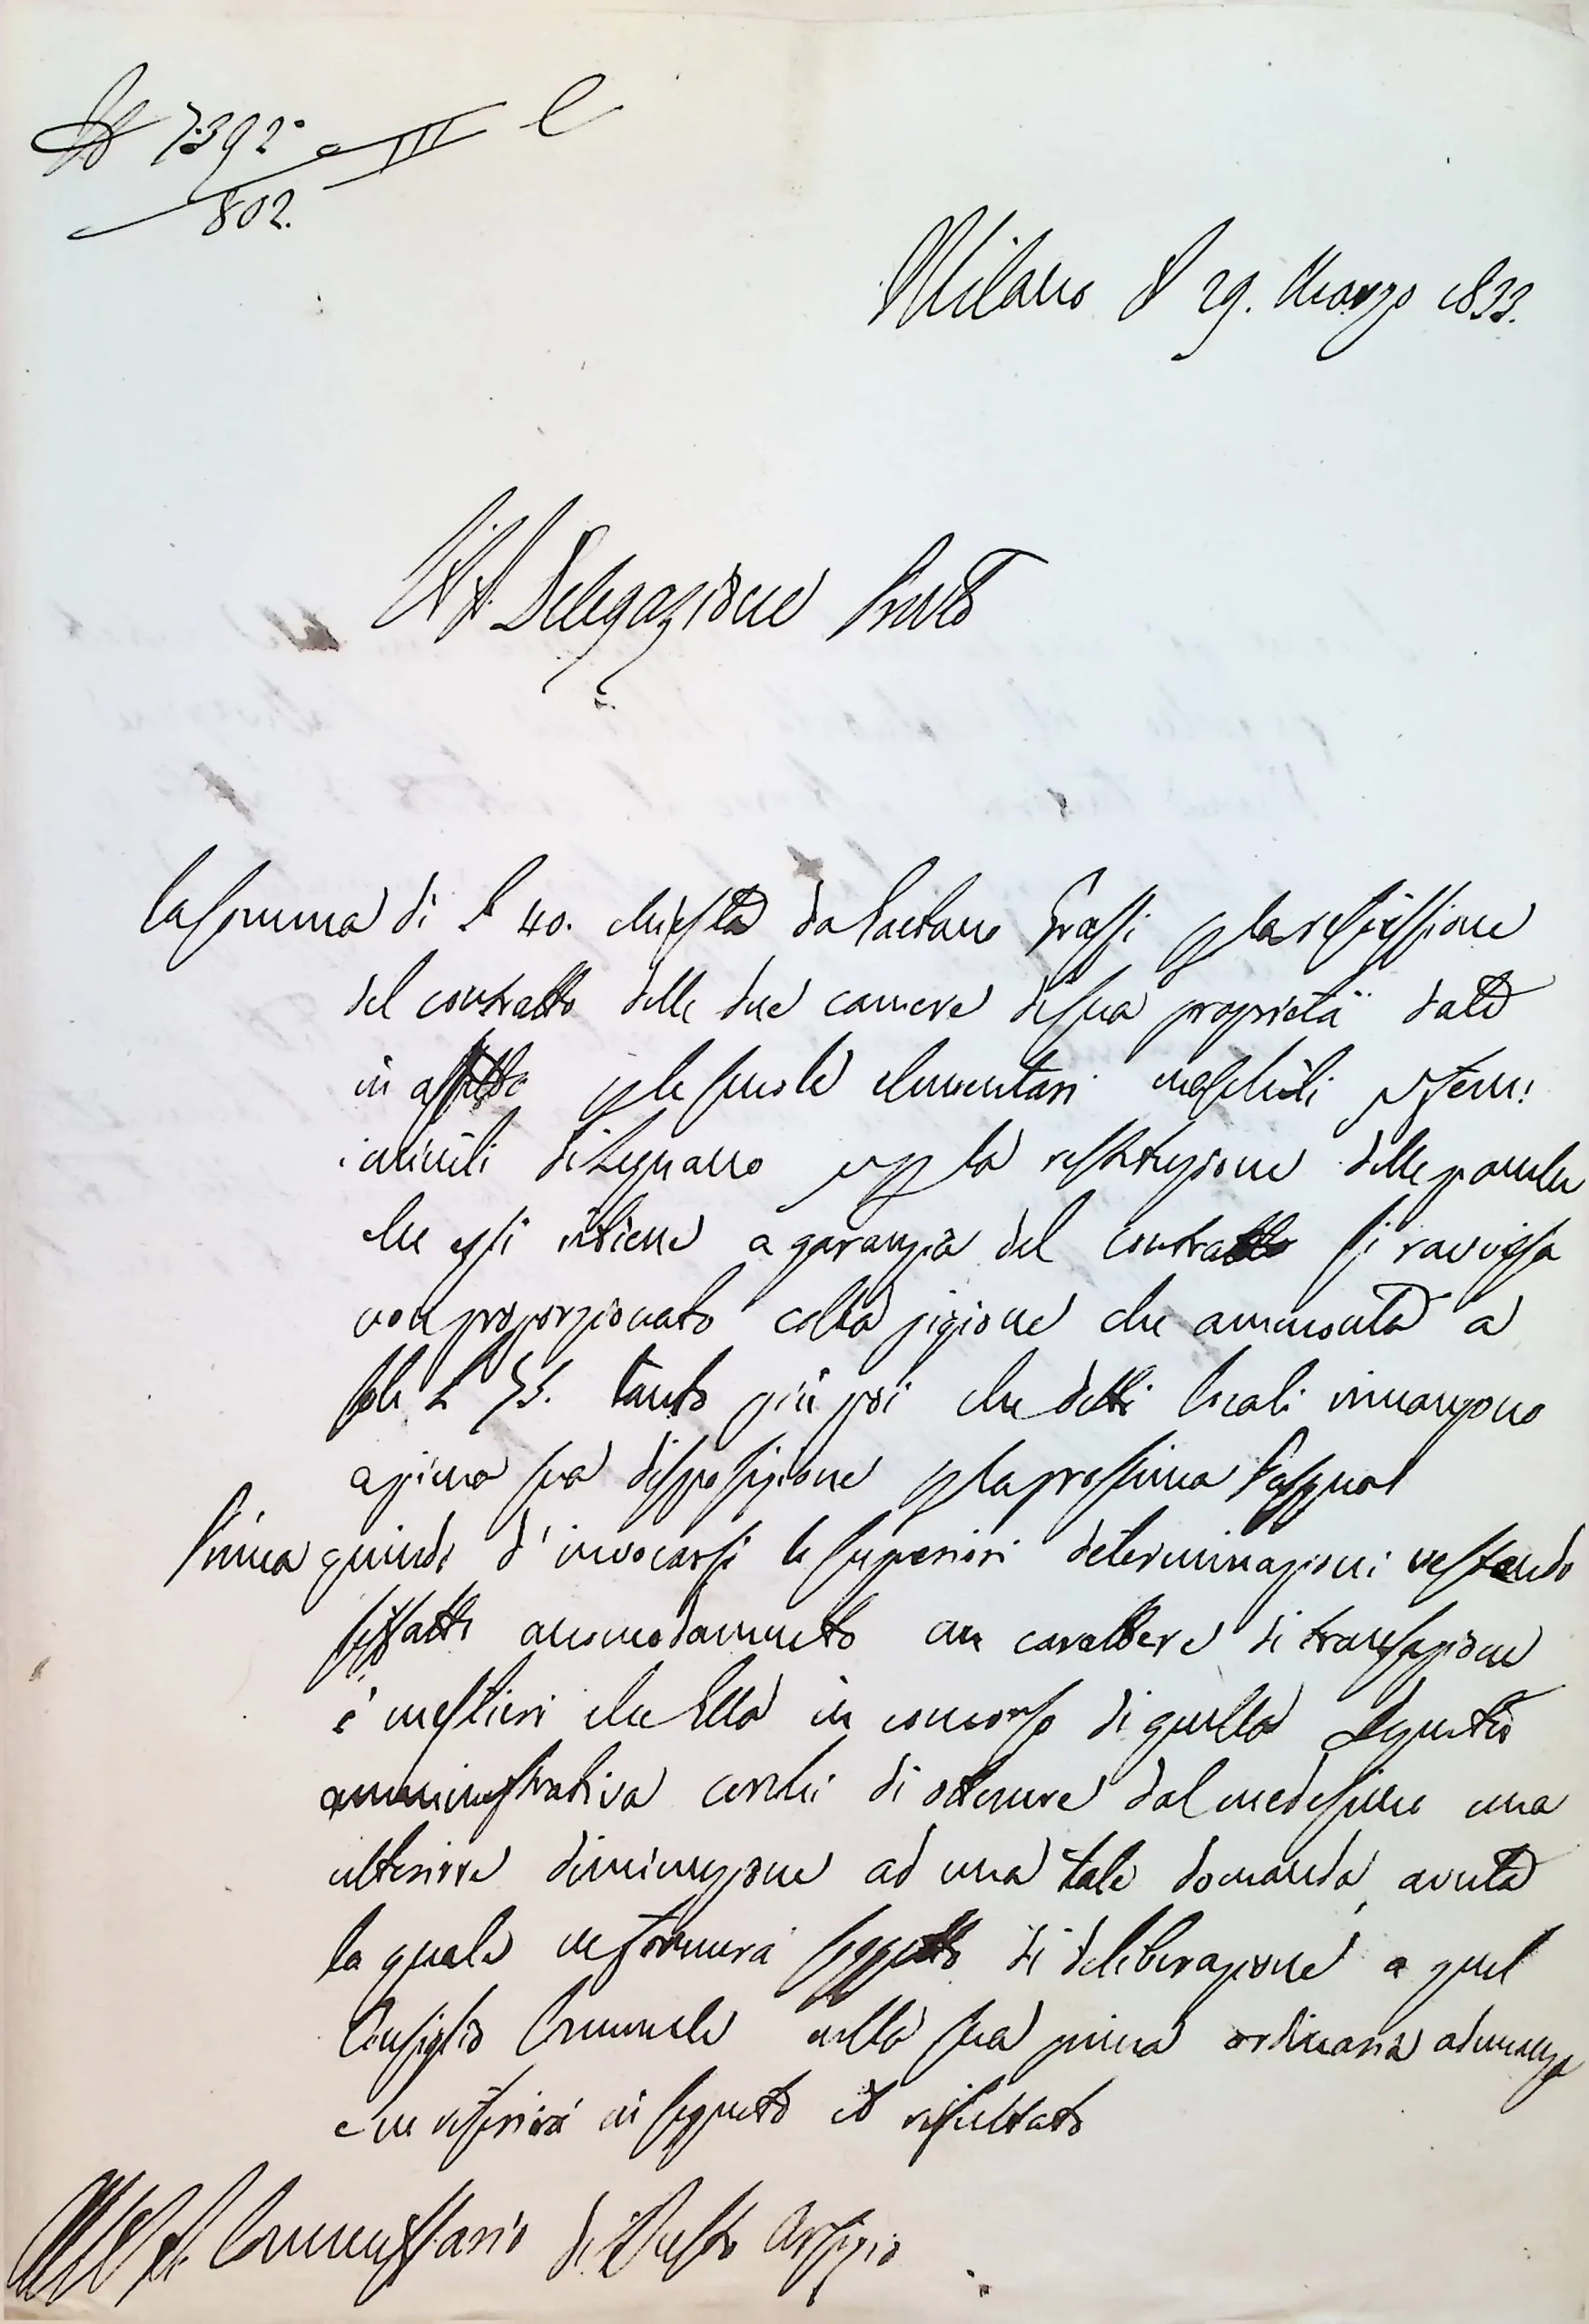 N 7392 III C
802.
Milano il 29. Marzo 1833.
L'I. R. Delegazione Prov.le
La somma di L 40. chiesta da Gaetano Grassi p la rescissione
del contratto delle due camere di sua proprietà date
in affitto p le scuole elementari maschili e fem:
minili di Legnano e p la restituzione delle panche
che essi ritiene a garanzia del contratto si ravvisa
non proporzionata colla pigione che ammonta a
sole L 75. tanto più poi che detti locali rimangono
a piena sua disposizione p la prossima Pasqua
Prima quindi d'invocarsi le superiori determinazioni vestendo
siffatto accomodamento un carattere di transazione
è mestieri che Ella in concorso di quella Deputa.e
amministrativa cerchi di ottenere dal medesimo una
ulteriore diminuzione ad una tale domanda, avuta
la quale ne formerà soggetto di deliberazione a quel
Consiglio Comunale nella sua prima ordinaria adunanza
e ne riferirà in seguito il risultato
All'I. R. Commissario di Busto Arsizio